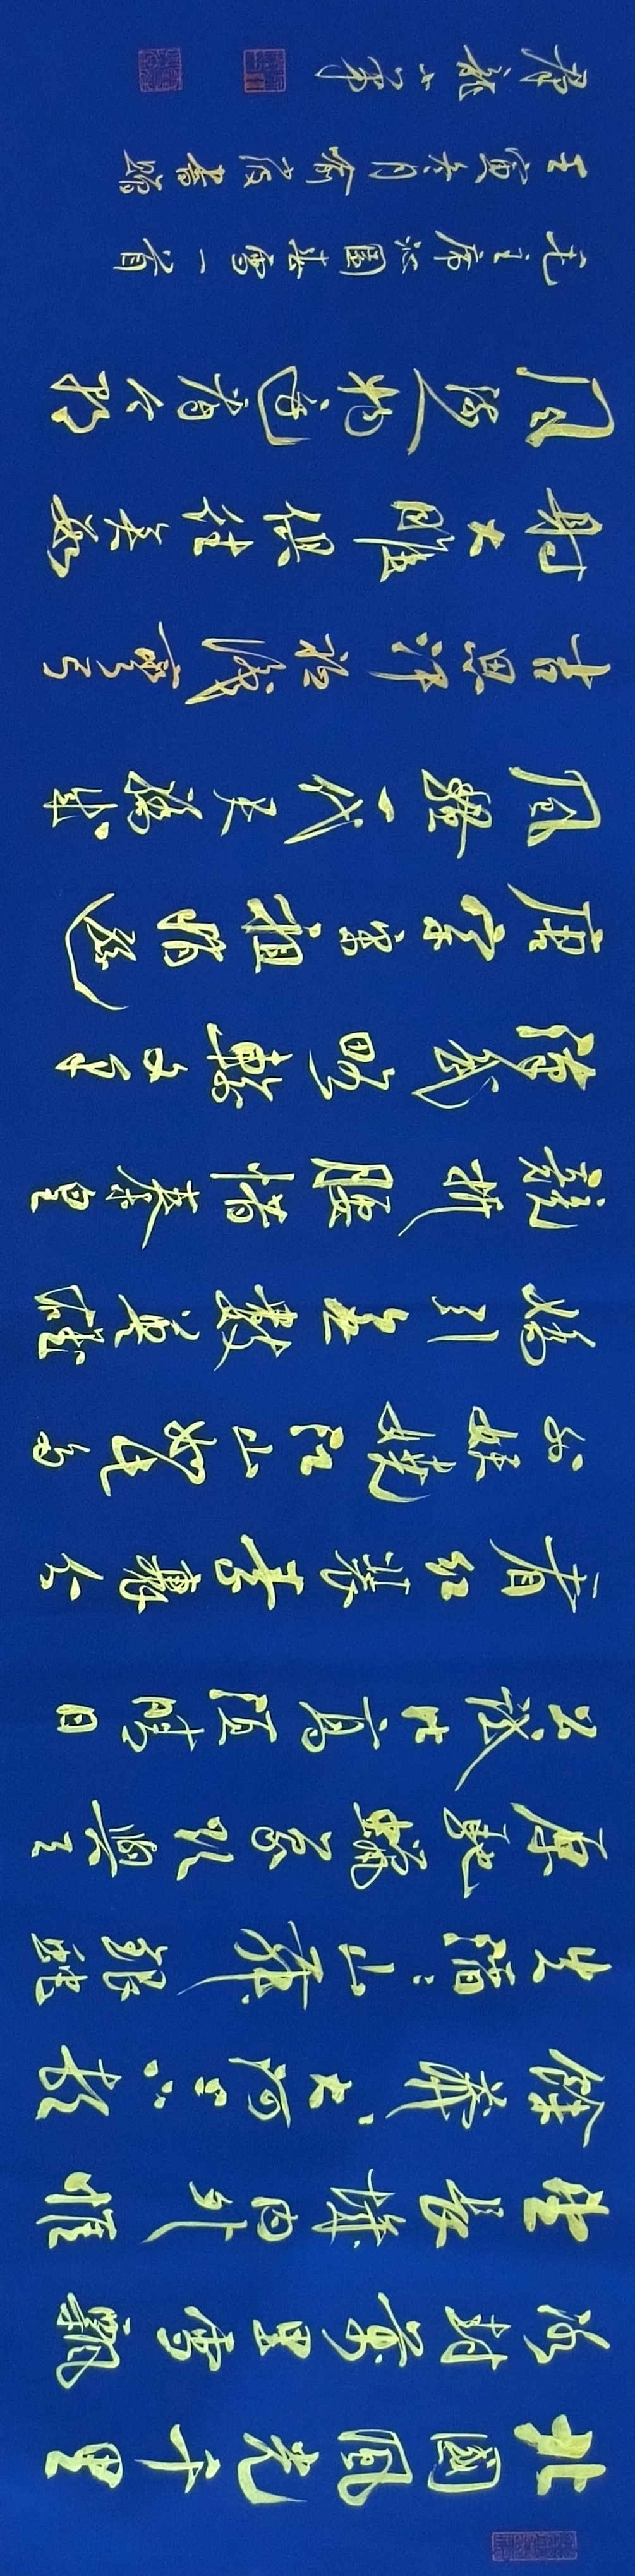 北國風光千里
冰封萬里雪飄
望長城內外惟
餘莽莽大河上下頓
失滔滔山舞銀蛇
原馳蠟象欲與天
公試比高須晴日
看紅裝素裹分
外妖嬈江山如此多
嬌引無數英雄
競折腰惜秦皇
漢武略輸文采
唐宗宋祖稍遜
風騷一代天驕成
吉思汗祇識彎弓
射大鵰俱往矣數
風流人物還看今朝
毛主席沁園春雪一首
壬寅冬月書